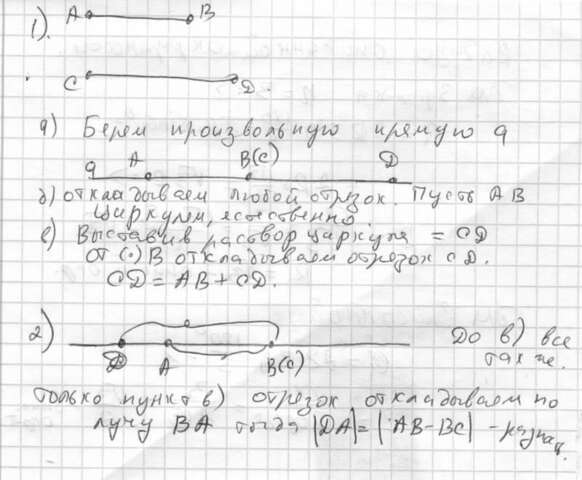 1).
A B
C D.
а) Берем произвольную прямую а
а A B(C) D
б) откладываем любой отрезок. Пусть AB
циркулем, естественно.
в) Выставив раствор циркуля = CD
от (.) B откладываем отрезок CD.
CD = AB + CD.
2) До в) все
так же.
D A B(C)
только пункт в) отрезок откладываем по
лучу BA тогда |DA| = |AB-BC| -